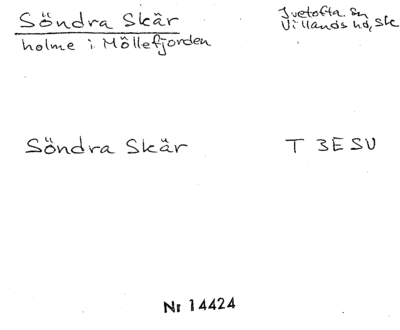 Söndra Skär
Ivetofta Sn
holme i Möllefjorden
Villands hd, Sk
Söndra Skär
T 3E SV
Nr 14424